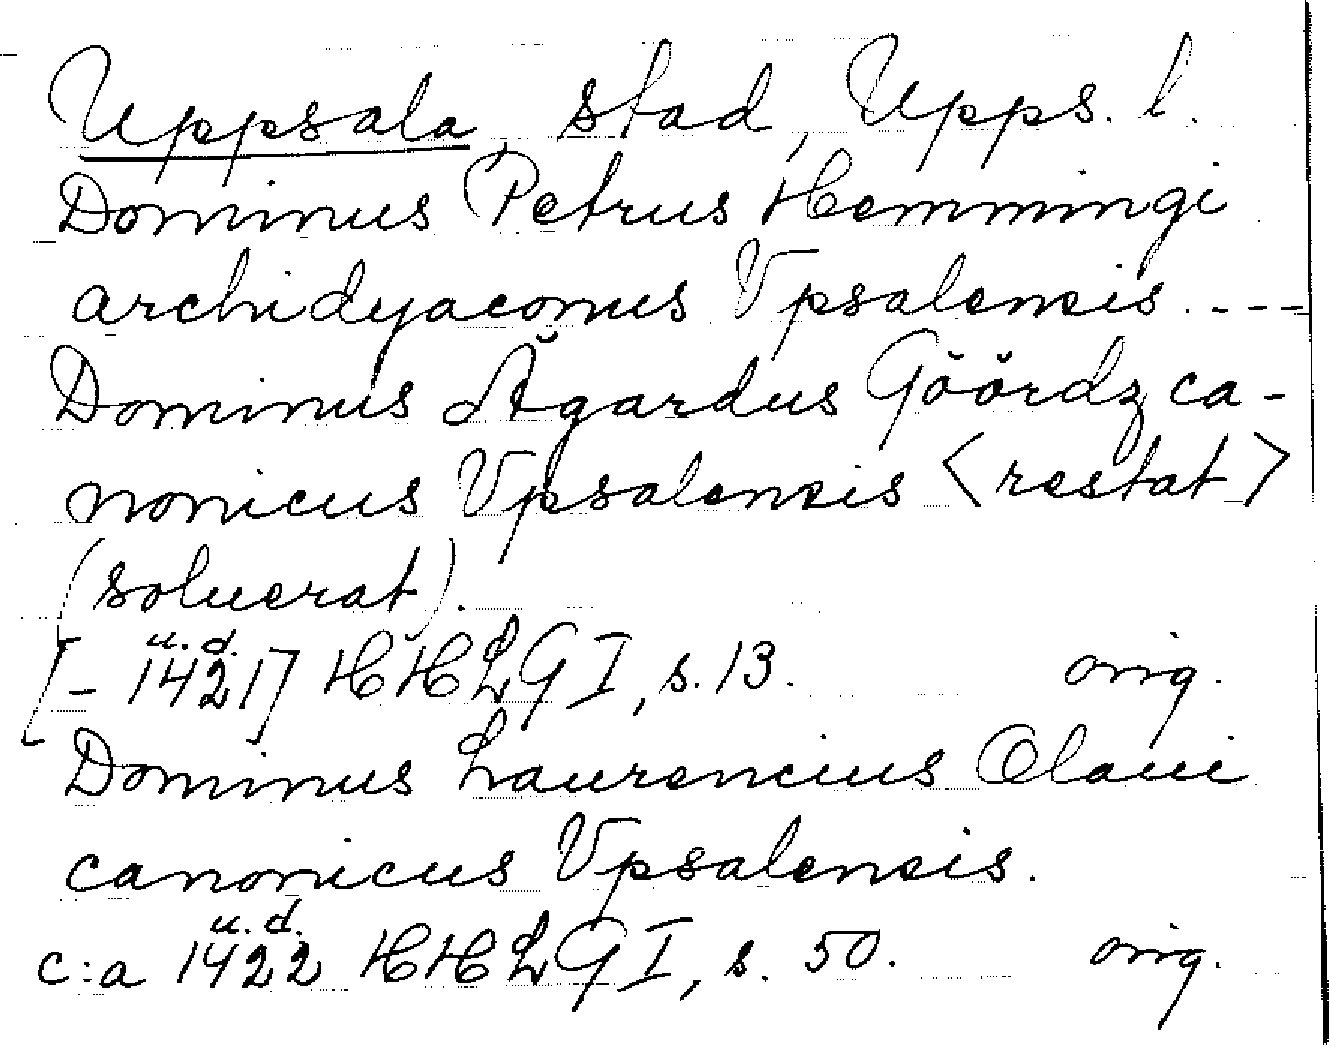 Uppsala, stad, Upps. l.
Dominus Petrus Hemmingi
archidyaconus Vpsalensis. ---
Dominus Ăgardus Gŏŏrdz ca-
nonicus Vpsalensis <restat>
(soluerat).
[- 1421 u.d.] HHLG I, s. 13. orig.
Dominus Laurencius Olaui
canonicus Vpsalensis.
c:a 1422 u.d. HHLG I, s. 50. orig.